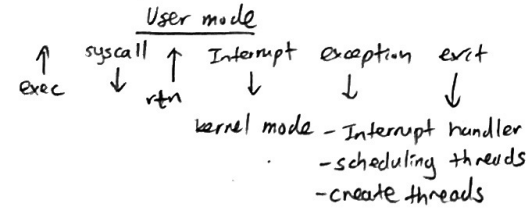 User mode
syscall Interrupt exception exit
exec rtn
kernel mode - Interrupt handler
- scheduling threads
- create threads